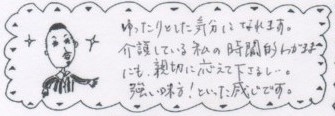 ゆったりとした気分になれます。
介護している私の時間的わがまま
にも、親切に応えて下さるし、。
強い味方！といった感じです。